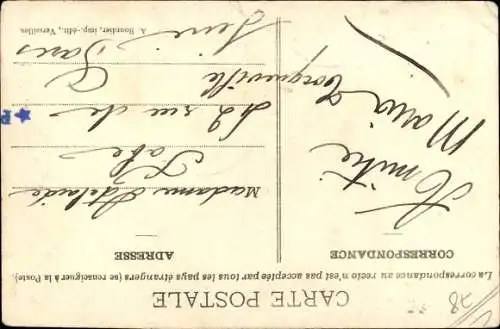 CARTE POSTALE
La correspondance au recto n'est pas acceptée par tous les pays étrangers (se renseigner à la Poste).
CORRESPONDANCE
Amitié
Maria
ADRESSE
Madame Adelaide
rue de
Paris
Seine
A. Bourdier, imp.-édit., Versailles.
78